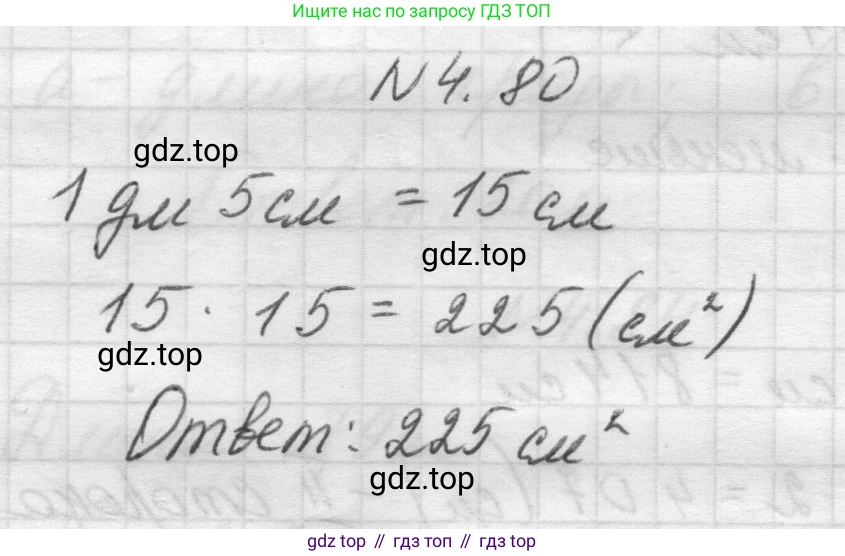 Ищите нас по запросу ГДЗ ТОП
N 4.80
gdz.top
1 дм 5 см = 15 см
gdz.top
15 · 15 = 225 (см²)
gdz.top
Ответ: 225 см²
gdz.top
gdz top // гдз топ // gdz top